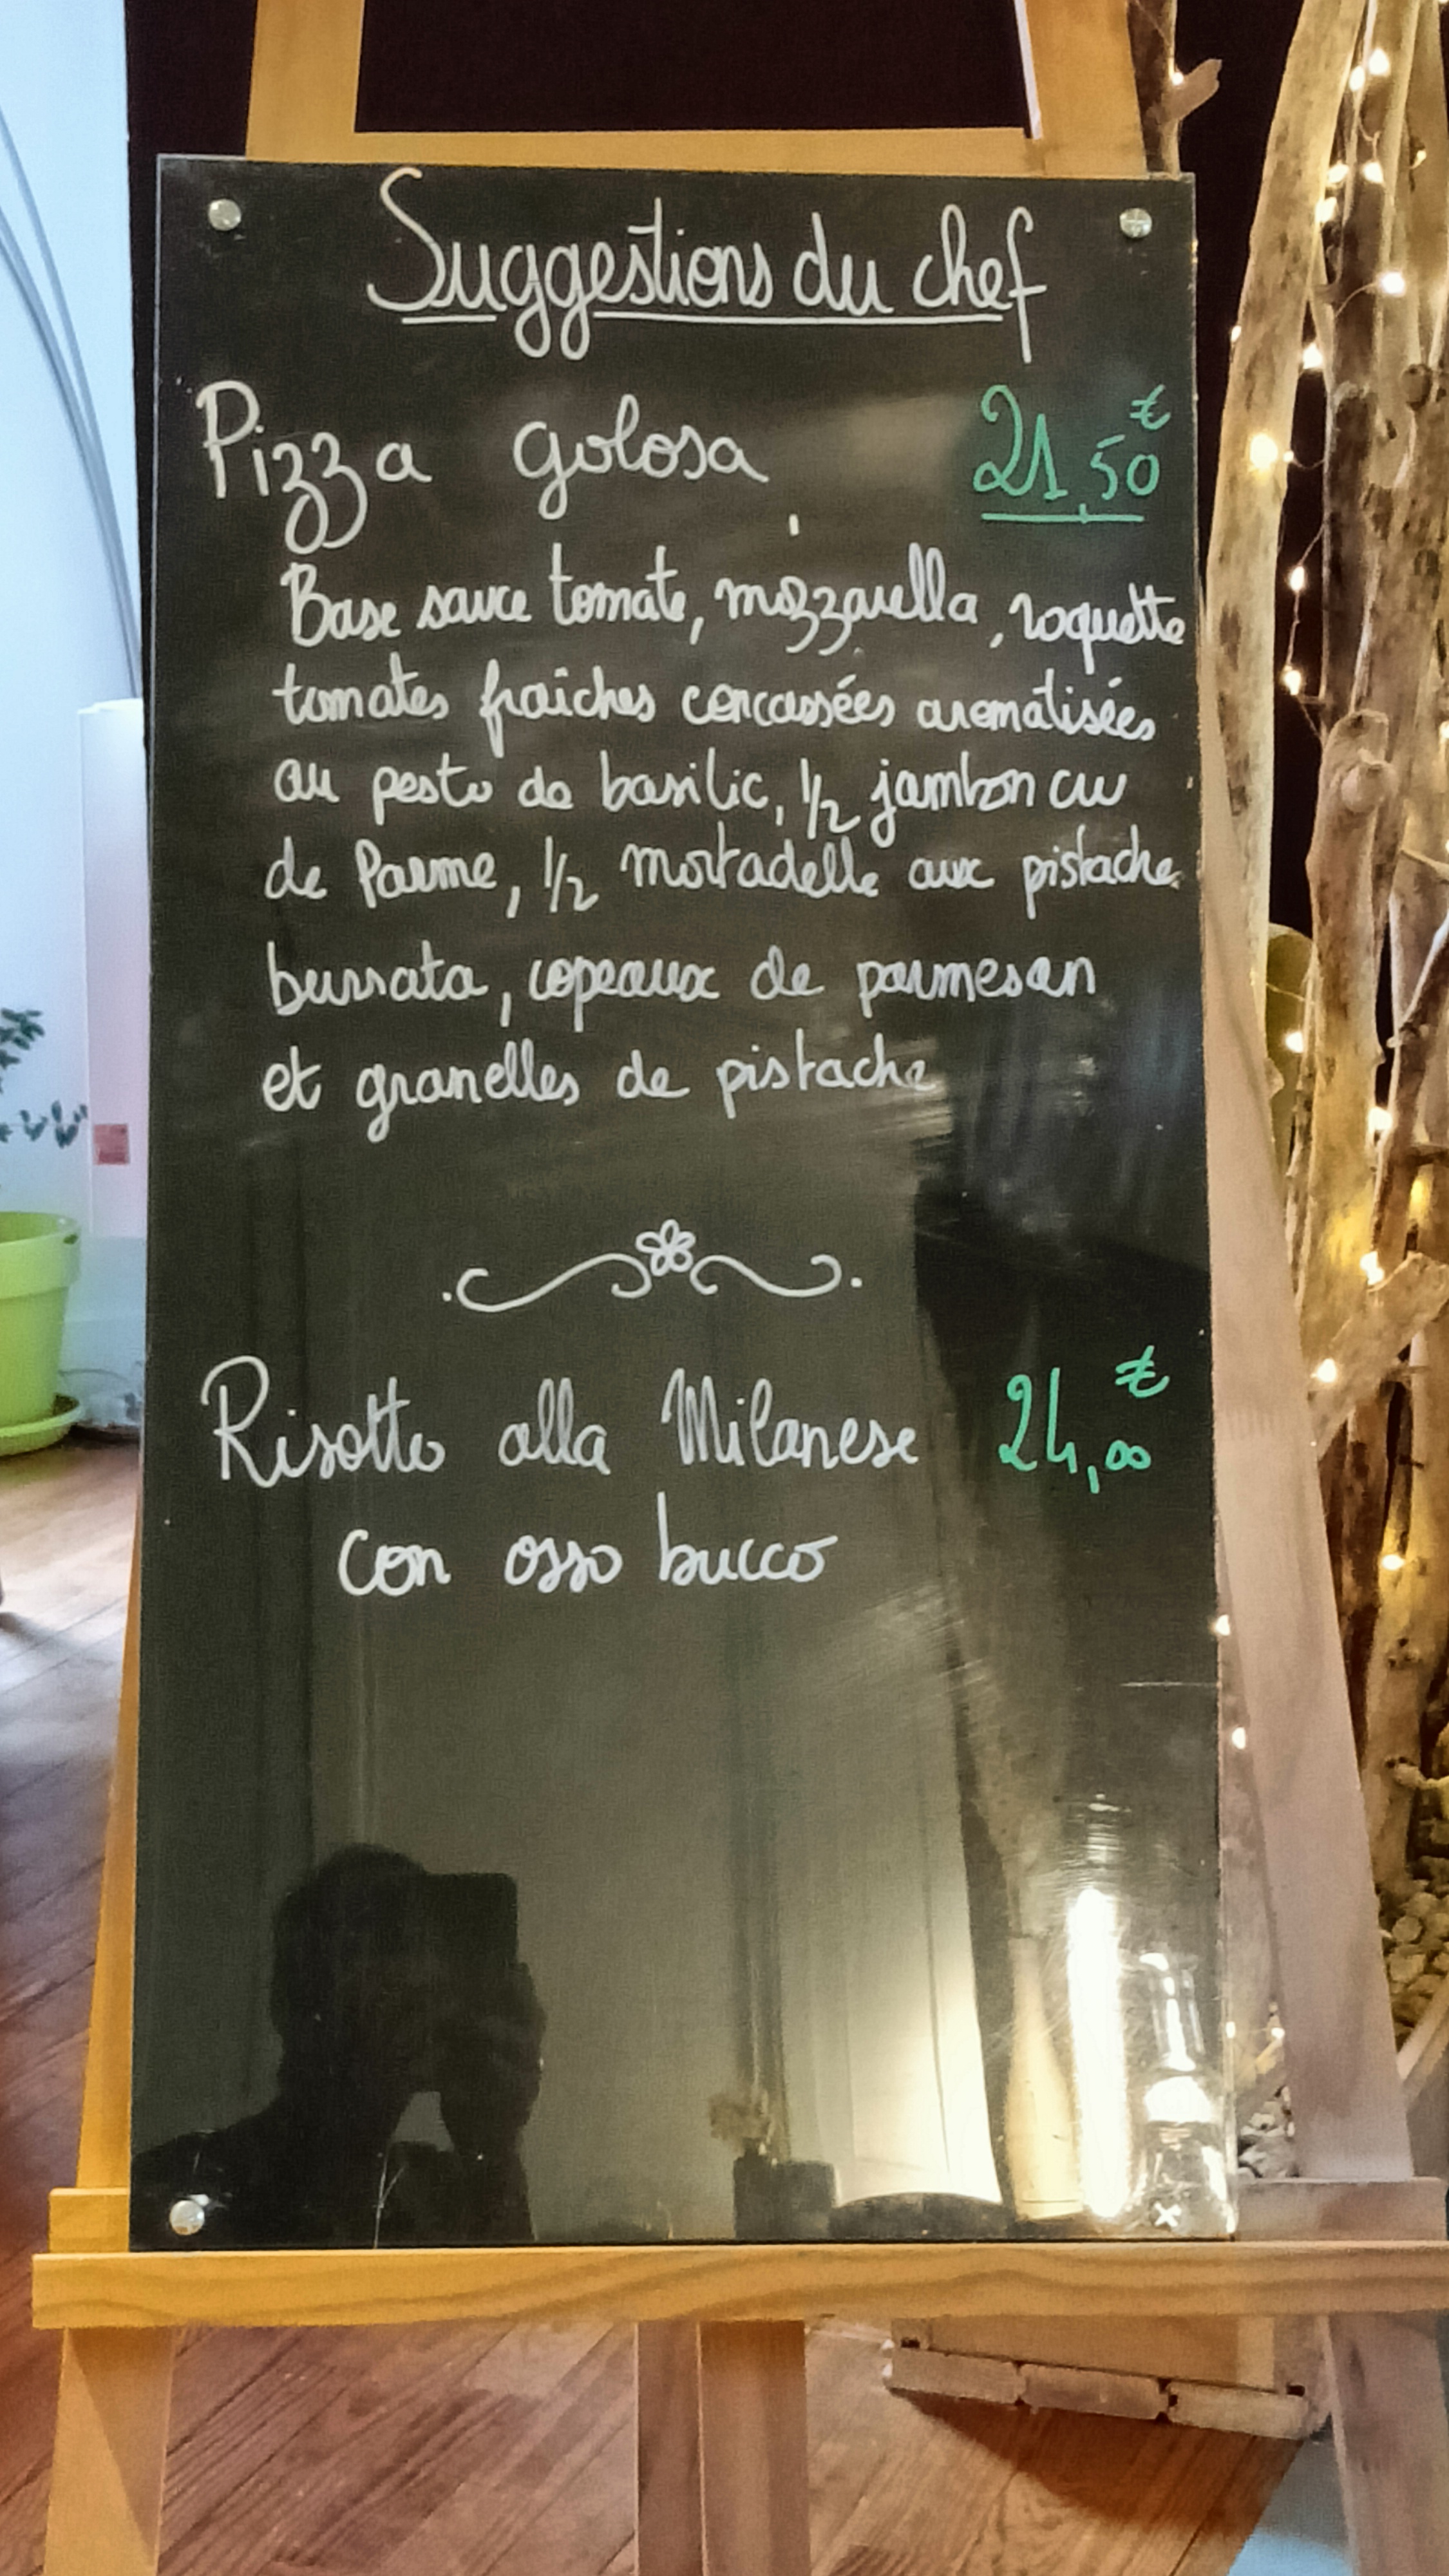 Suggestions du chef
Pizza golosa 21,50€
Base sauce tomate, mozzarella, roquette
tomates fraîches concassées aromatisées
au pesto de basilic, 1/2 jambon cru
de Parme, 1/2 mortadelle aux pistache
burrata, copeaux de parmesan
et granelles de pistache
Risotto alla Milanese 24,00€
con osso bucco